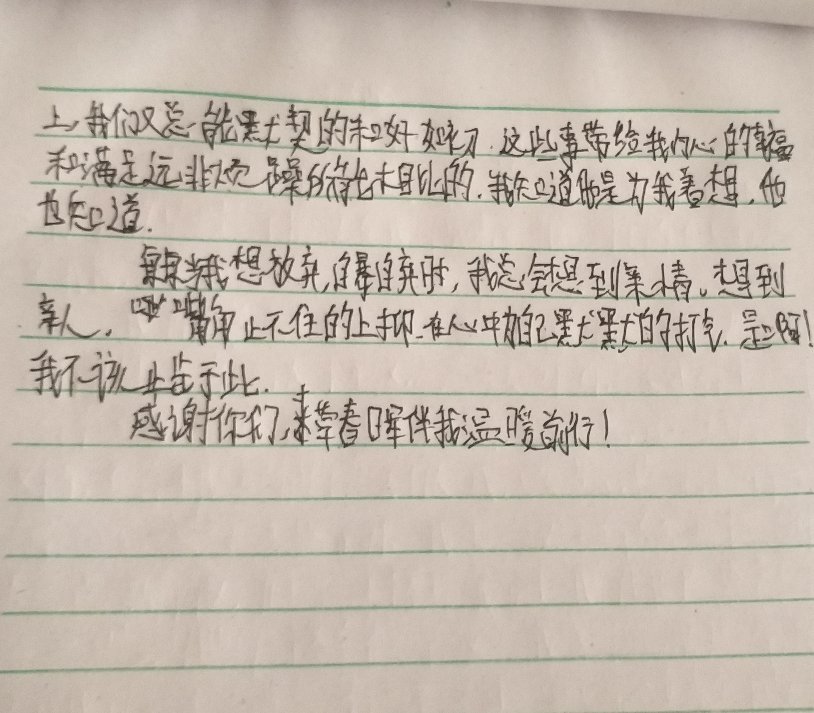 上,我们又总能默契的和好如初.这些事带给我内心的幸福
和满足远非烦躁所能比的.我知道他是为我着想,他
也知道.
每当我想放弃,自暴自弃时,我总会想到亲情。想到
亲人. 嘴角止不住的上扬.在心中为自己默默的打气.是啊!
我不该止步于此.
感谢你们,春晖伴我温暖前行!